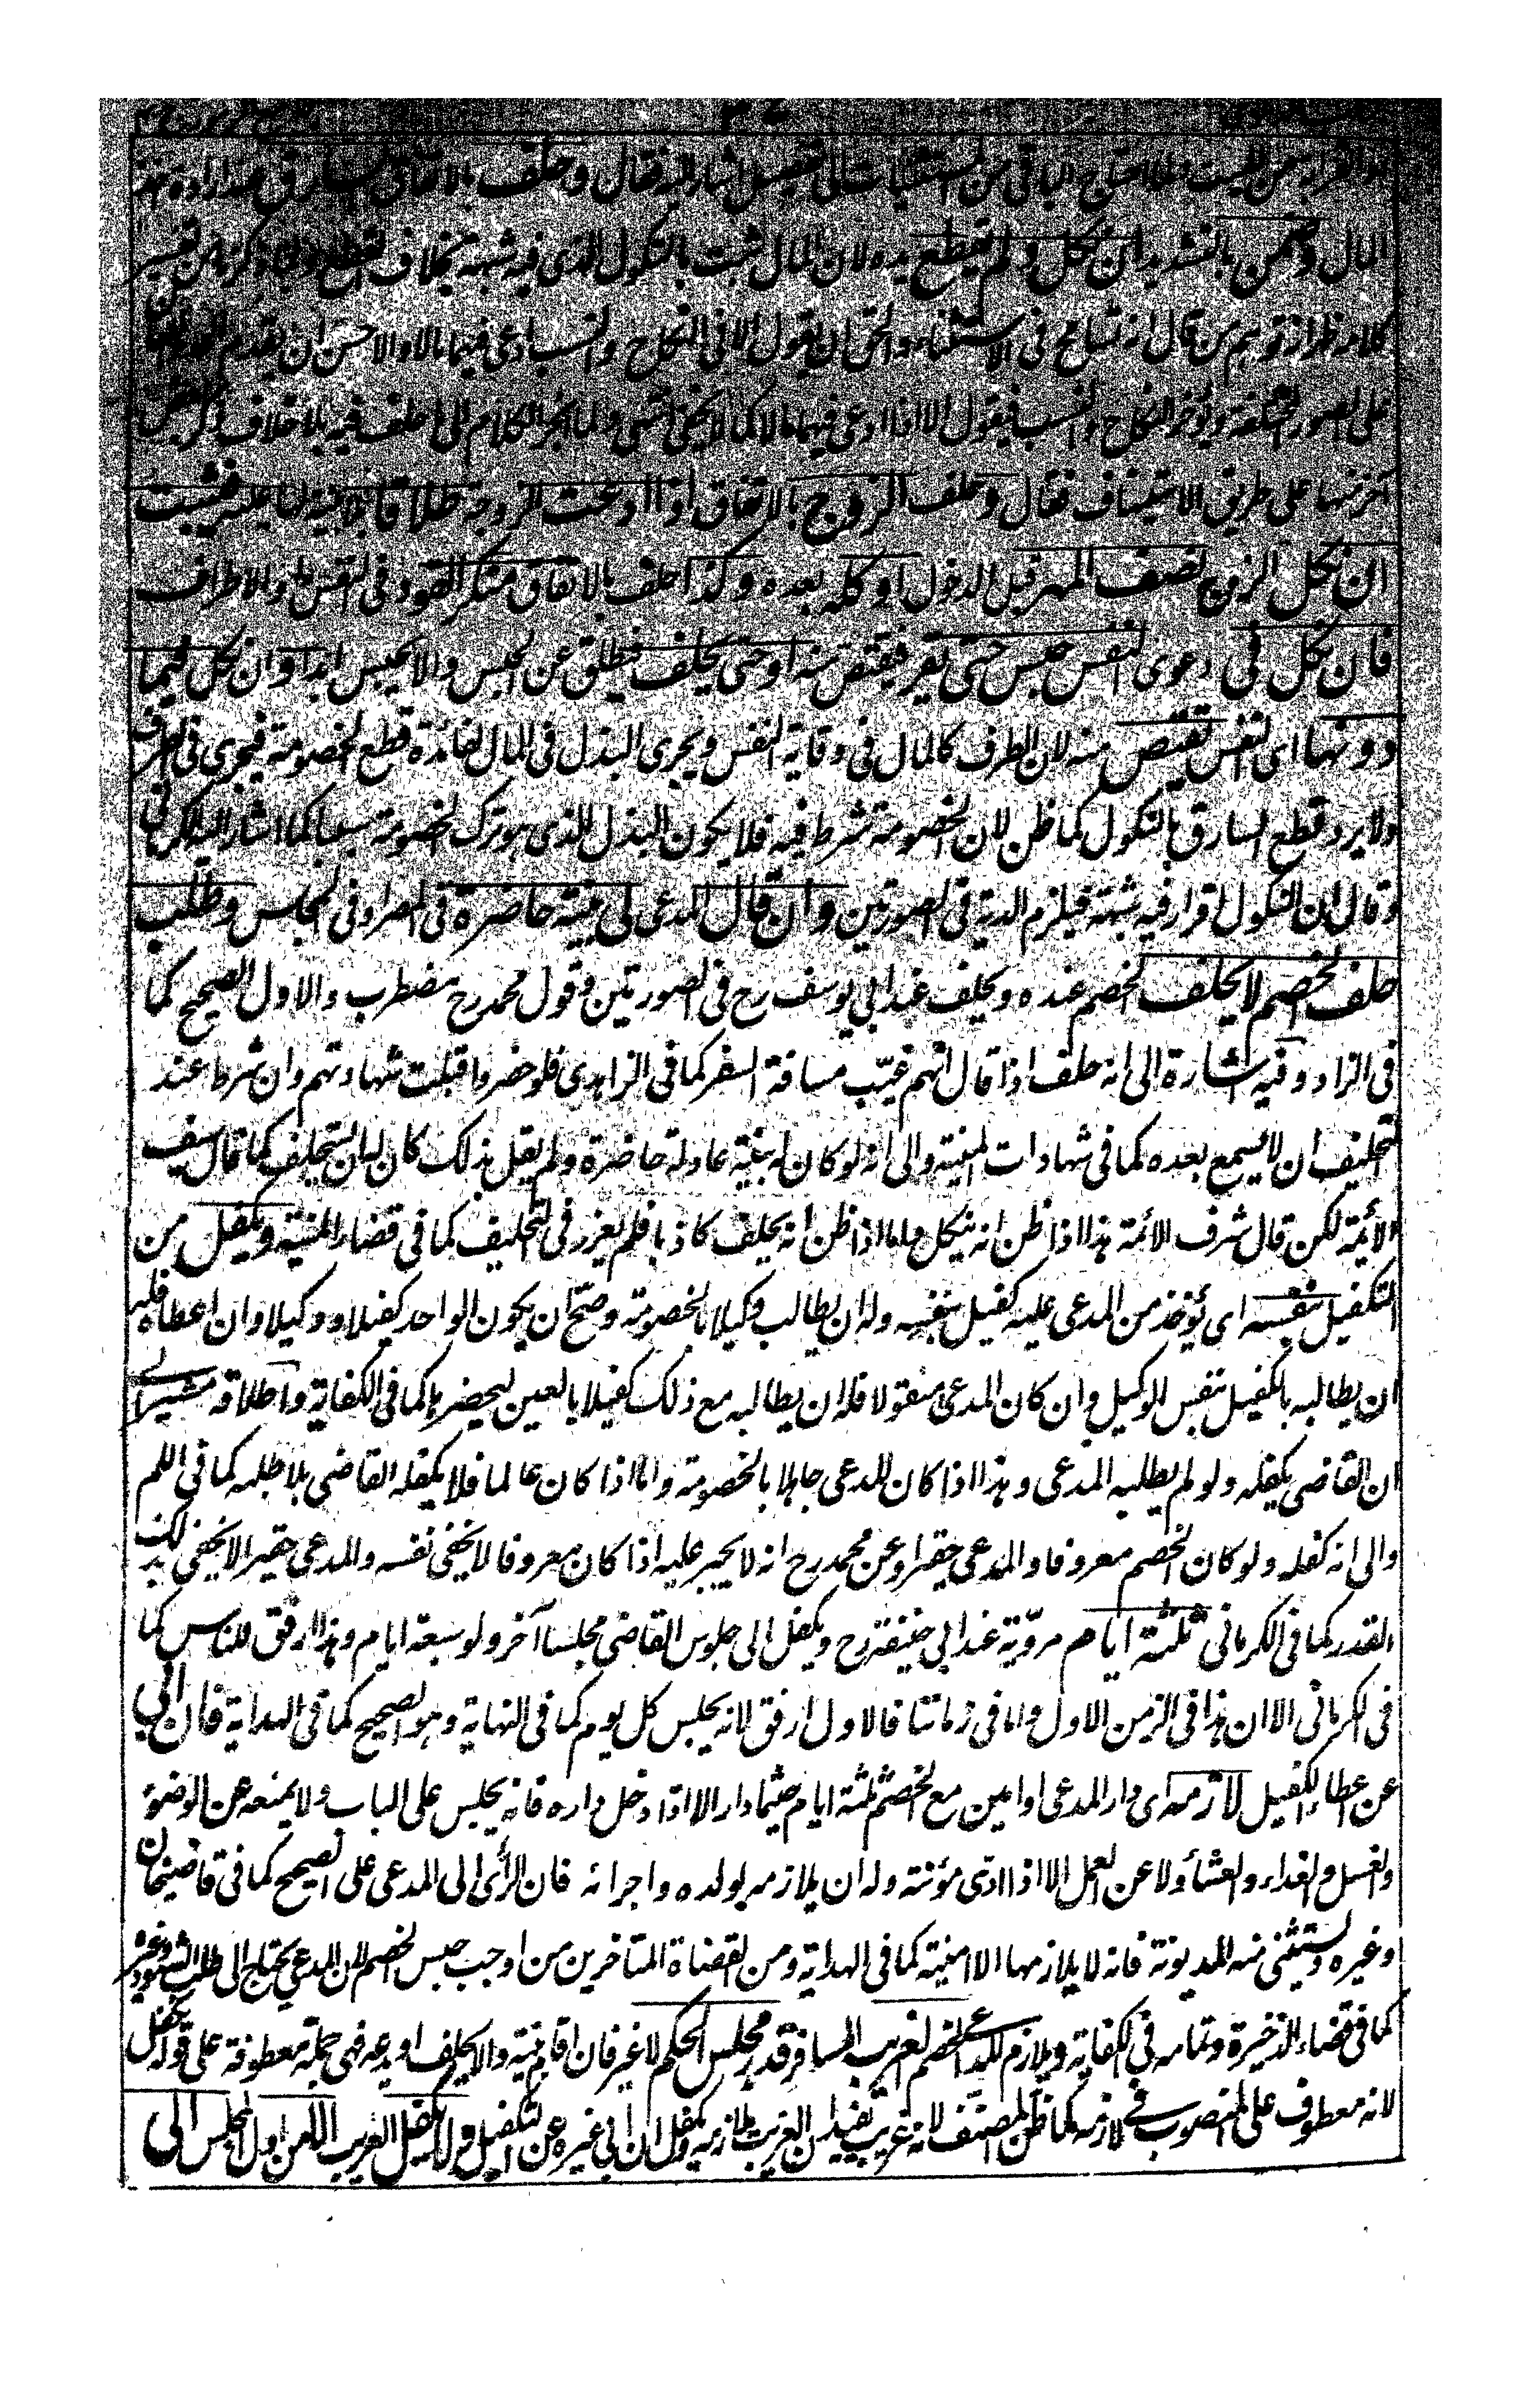 المال وضمن بالتشديد ان نكل ولم يقطع يده لان المال ثبت بالنكول الذى فيه شبهة بخلاف القطع
كلامه ظهر انه توهم من قال انه تسامح فى الاستثناء والحق ان يقول الا فى النكاح والنسب ادعى فيهما مالا والاحسن ان يقدم
على الصور ويؤخر النكاح والنسب فيقول الا اذا ادعى فيهما مالا كما لا يخفى انتهى ولما انجر الكلام الى ما حلف فيه بلا خلاف
آخر منها على طريق الاستيناف فقال وحلف الزوج بالاتفاق اذا ادعت الزوجة طلاقا
ان نكل الزوج نصف المهر قبل الدخول او كله بعده وكذا حلف بالاتفاق منكر القود فى النفس والاطراف
فان نكل فى دعوى النفس حبس حتى يقر فيقتص منه او حتى يحلف فيطلق عن الحبس ولا يحبس ابدا وان نكل فيما
دونها اى النفس يقتص منه لان الطرف كالمال فى وقاية النفس ويجرى البذل فى المال لفائدة قطع الخصومة فيجرى فى الطرف
ولا يرد قطع السارق بالنكول كما ظن لان الخصومة شرط فيه فلا يكون البذل الذى هو ترك الخصومة سببا كما اشار اليه الكرمانى
وقالا ان النكول اقرار فيه شبهة فيلزم الدية فى الصورتين وان قال المدعى لى بينة حاضرة فى المصر او فى المجلس وطلب
حلف الخصم لا يحلف الخصم عنده ويحلف عند ابى يوسف رح فى الصورتين وقول محمد رح مضطرب والاول الصحيح كما
فى الزاد وفيه اشارة الى انه حلف اذا قال انهم غيب مسافة السفر كما فى الزاهدى فلو حضروا قبلت شهادتهم وان شرط عند
التحليف ان لا يسمع بعده كما فى شهادات المنية والى انه لو كان له بينة عادلة حاضرة ولم يقل ذلك كان له ان يستحلف كما قال سيف
الائمة لكن قال شرف الائمة هذا اذا ظن انه ينكل واما اذا ظن انه يحلف كاذبا فلم يعزر فى التحليف كما فى قضاء المنية ويكفل من
التكفيل بنفسه اى يؤخذ من المدعى عليه كفيل بنفسه وله ان يطالب وكيلا بالخصومة وصح ان يكون الواحد كفيلا ووكيلا وان اعطاه فله
ان يطالبه بالكفيل بنفس الوكيل وان كان المدعى منقولا فله ان يطالبه مع ذلك كفيلا بالعين ليحضرها كما فى الكفاية واطلاقه مشير الى
ان القاضى يكفله ولو لم يطلبه المدعى وهذا اذا كان المدعى جاهلا بالخصومة واما اذا كان عالما فلا يكفله القاضى بلا طلبه كما فى اللم
والى انه كفله ولو كان الخصم معروفا والمدعى حقيرا وعن محمد رح انه لا يجبر عليه اذا كان معروفا لا يخفى نفسه والمدعى حقيرا لا يخفى بذلك
القدر كما فى الكرمانى ثلثة ايام مروية عند ابى حنيفة رح ويكفل الى جلوس القاضى مجلسا آخر ولو سبعة ايام وهذا ارفق للناس كما
فى الكرمانى الا ان هذا فى الزمن الاول واما فى زماننا فالاول ارفق لانه يجلس كل يوم كما فى النهاية وهو الصحيح كما فى الهداية فان ابى
عن اعطاء الكفيل لازمه اى دار المدعى او امين مع الخصم ثلثة ايام حيثما دار الا اذا دخل داره فانه يجلس على الباب ولا يمنعه عن الوضوء
والغسل والغداء والعشاء ولا عن العمل الا اذا ادى مؤنته وله ان يلازمه بولده واجرائه فان الرأى الى المدعى على الصحيح كما فى قاضيخان
وغيره ويستثنى منه المديونة فانه لا يلازمها الا امينة كما فى الهداية ومن القضاة المتاخرين من اوجب حبس الخصم لان المدعى يحتاج الى طلب الشهود وغيره
كما فى قضاء الذخيرة وتمامه فى الكفاية ويلازم المدعى الخصم الغريب المسافر قدر مجلس الحكم لا غير فان اقام بينة والا يحلف او يدعه فهى جملة معطوفة على قوله يكفل
لانه معطوف على المنصوب فى لازمه كما ظن المصنف لانه غريب يفيد ان الغريب يلازمه ويكفل ان ابى غيره عن التكفيل ولا يكفل الغريب الا من اول المجلس الى